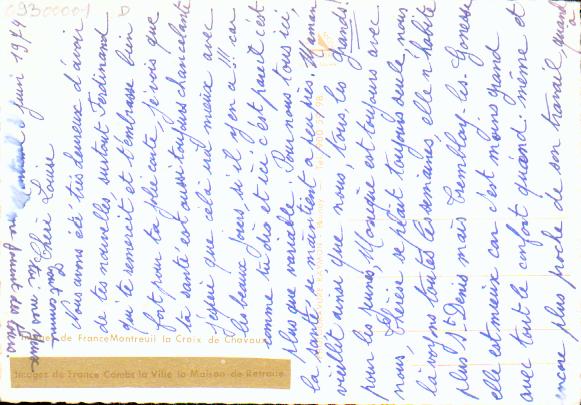 09300001 D
Montreuil juin 1974
Chère Louise
Nous avons été très heureux d'avoir
de tes nouvelles surtout Ferdinand
qui te remercit et t'embrasse bien
fort pour ta jolie carte, je vois que
ta santé est aussi toujours chancelante
j'espère que cela ira mieux avec
les beaux jours, s'il y en a !!! car
comme tu dis et ici c'est pareil c'est
plus que variable. Pour nous tous ici,
la santé se maintient a peu près. Maman
vieillit ainsi que nous, tous, les grands!
pour les jeunes, Monique est toujours avec
nous, Thérèse se plait toujours seule, nous
la voyons toutes les semaines, elle n'habite
plus St Denis mais Tremblay-les-Gonesse
elle est mieux car c'est moins grand
avec tout le confort quand-même et
encore plus proche de son travail, quand
à
Images de France Montreuil la Croix de Chavaux
Images de France Combs la Ville la Maison de Retraite